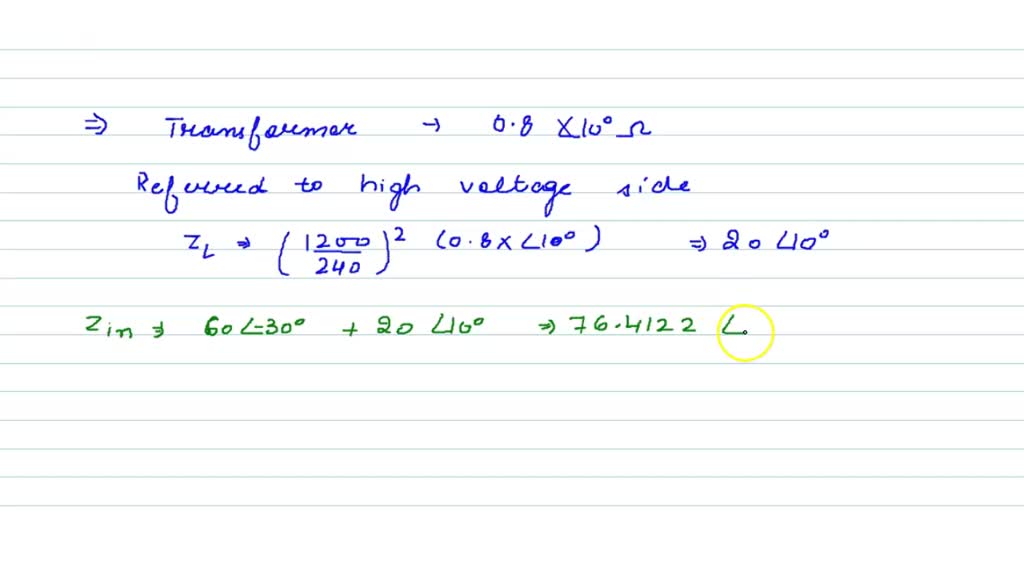 ⇒ Transformer → 0.8 ∠10° Ω
Referred to high voltage side
Z_L ⇒ (1200/240)² (0.8 x ∠10°) ⇒ 20 ∠10°
Z_in ⇒ 60∠-30° + 20 ∠10° ⇒ 76.4122 ∠